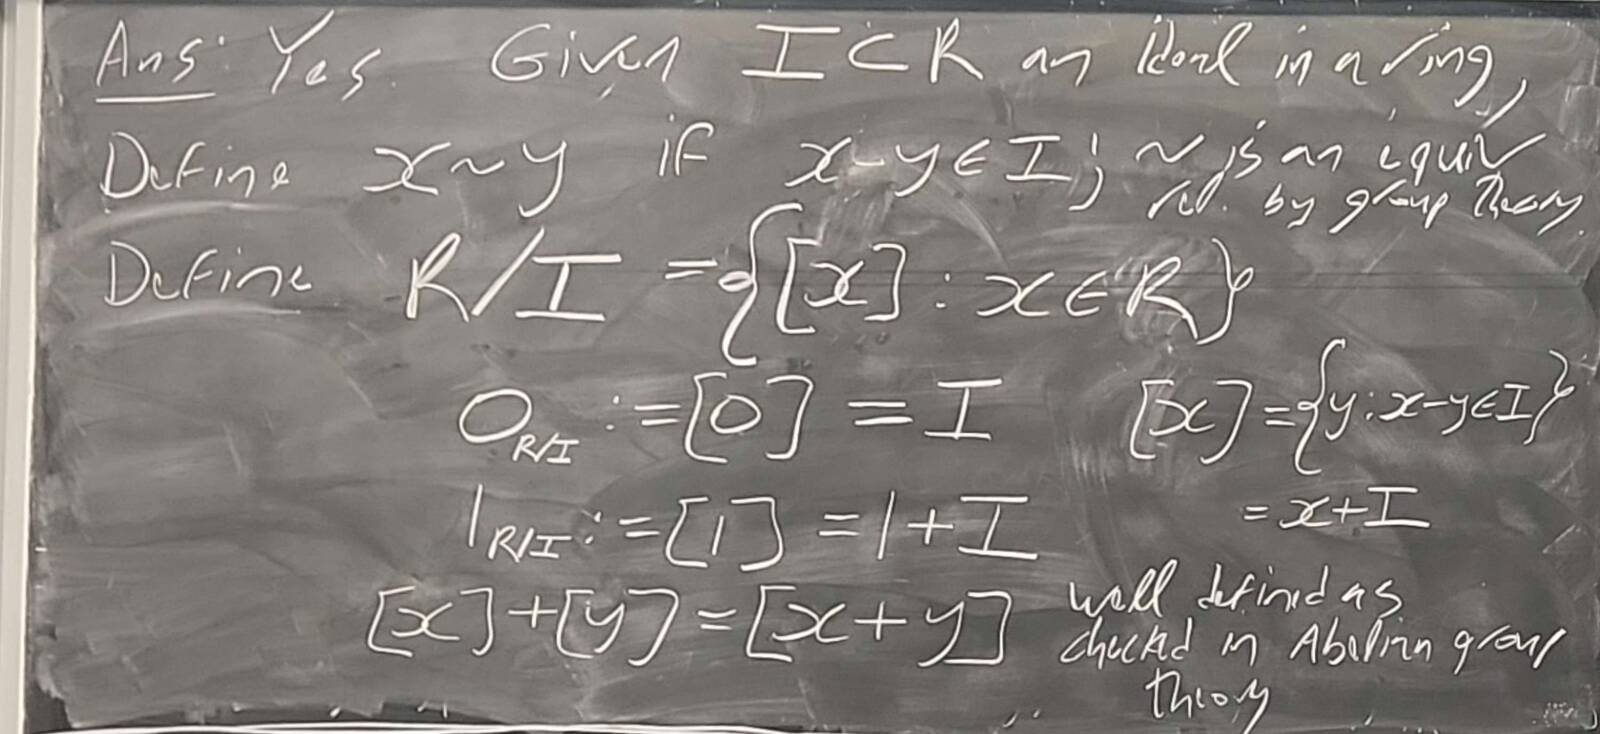 Ans: Yes. Given I ⊂ R an ideal in a ring,
Define x ~ y if x-y ∈ I; ~ is an equiv
rel. by group theory.
Define R/I = {[x] : x ∈ R}
0_{R/I} := [0] = I [x] = {y : x-y ∈ I}
1_{R/I} := [1] = 1 + I = x+I
[x]+[y] = [x+y] well defined as
checked in Abelian group
theory